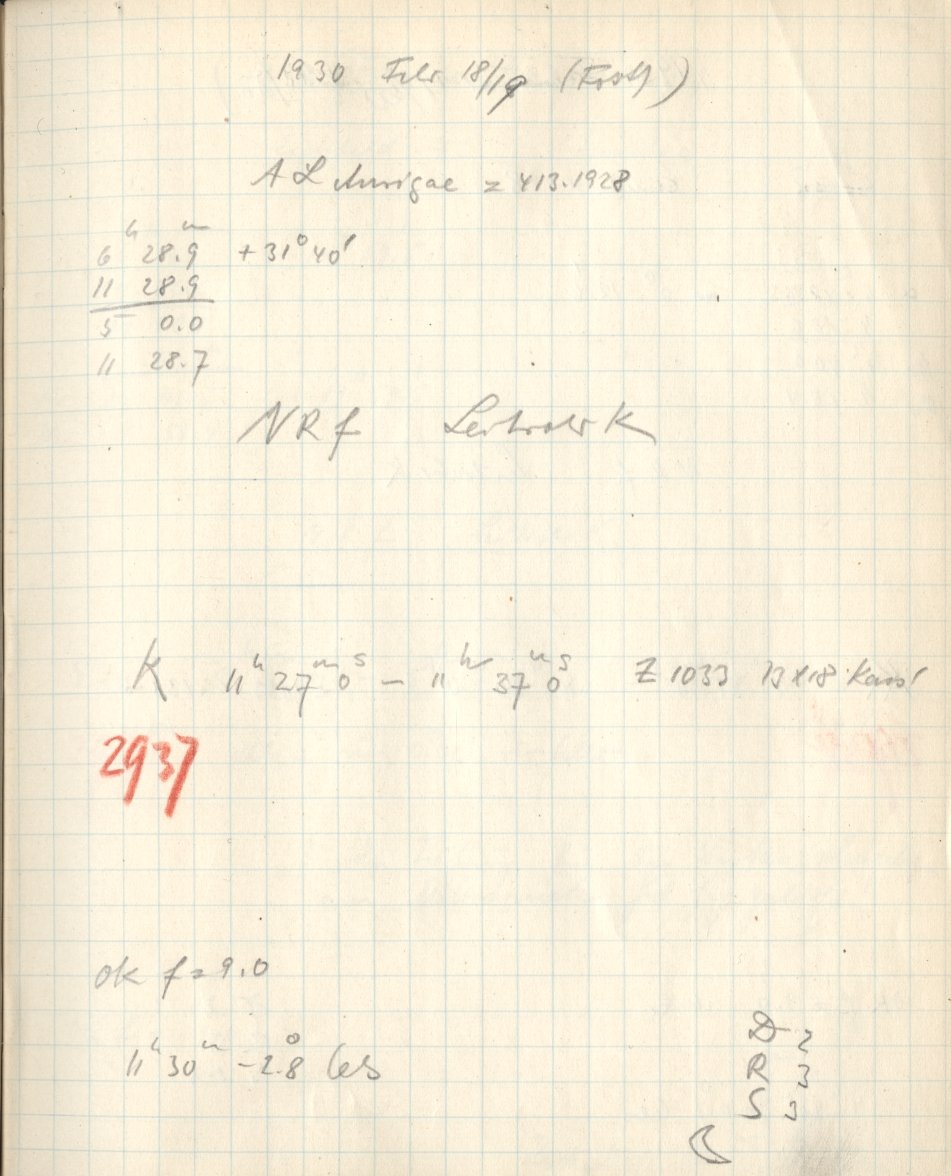 1930 Febr 18/19
AL Aurigae = 413.1928
6h 28.9m + 31° 40'
11 28.9
5 0.0
11 28.7
NRf
K 11h 27m 0s – 11h 37m 0s Z 1033 13x18
2937
ok f = 9.0
11h 30m – 2.8°
D 2
R 3
S 3